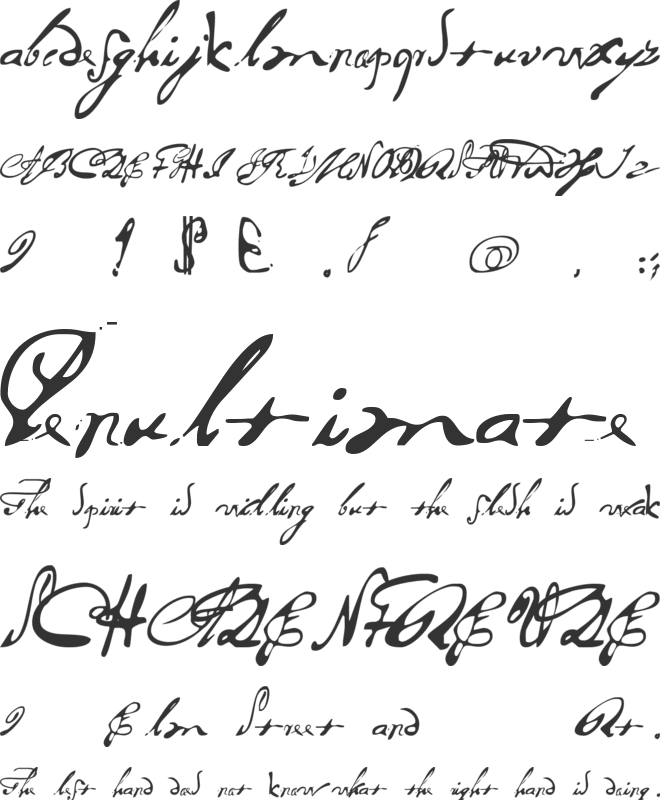 abcdefghijklmnopqrstuvwxyz
ABCDEFGHIJKLMNOPQRSTUVWXYZ
9 ! $ £ . f @ , : ;
Penultimate
The spirit is willing but the flesh is weak
SCHADENFREUDE
9 Elm Street and Rt.
The left hand does not know what the right hand is doing.